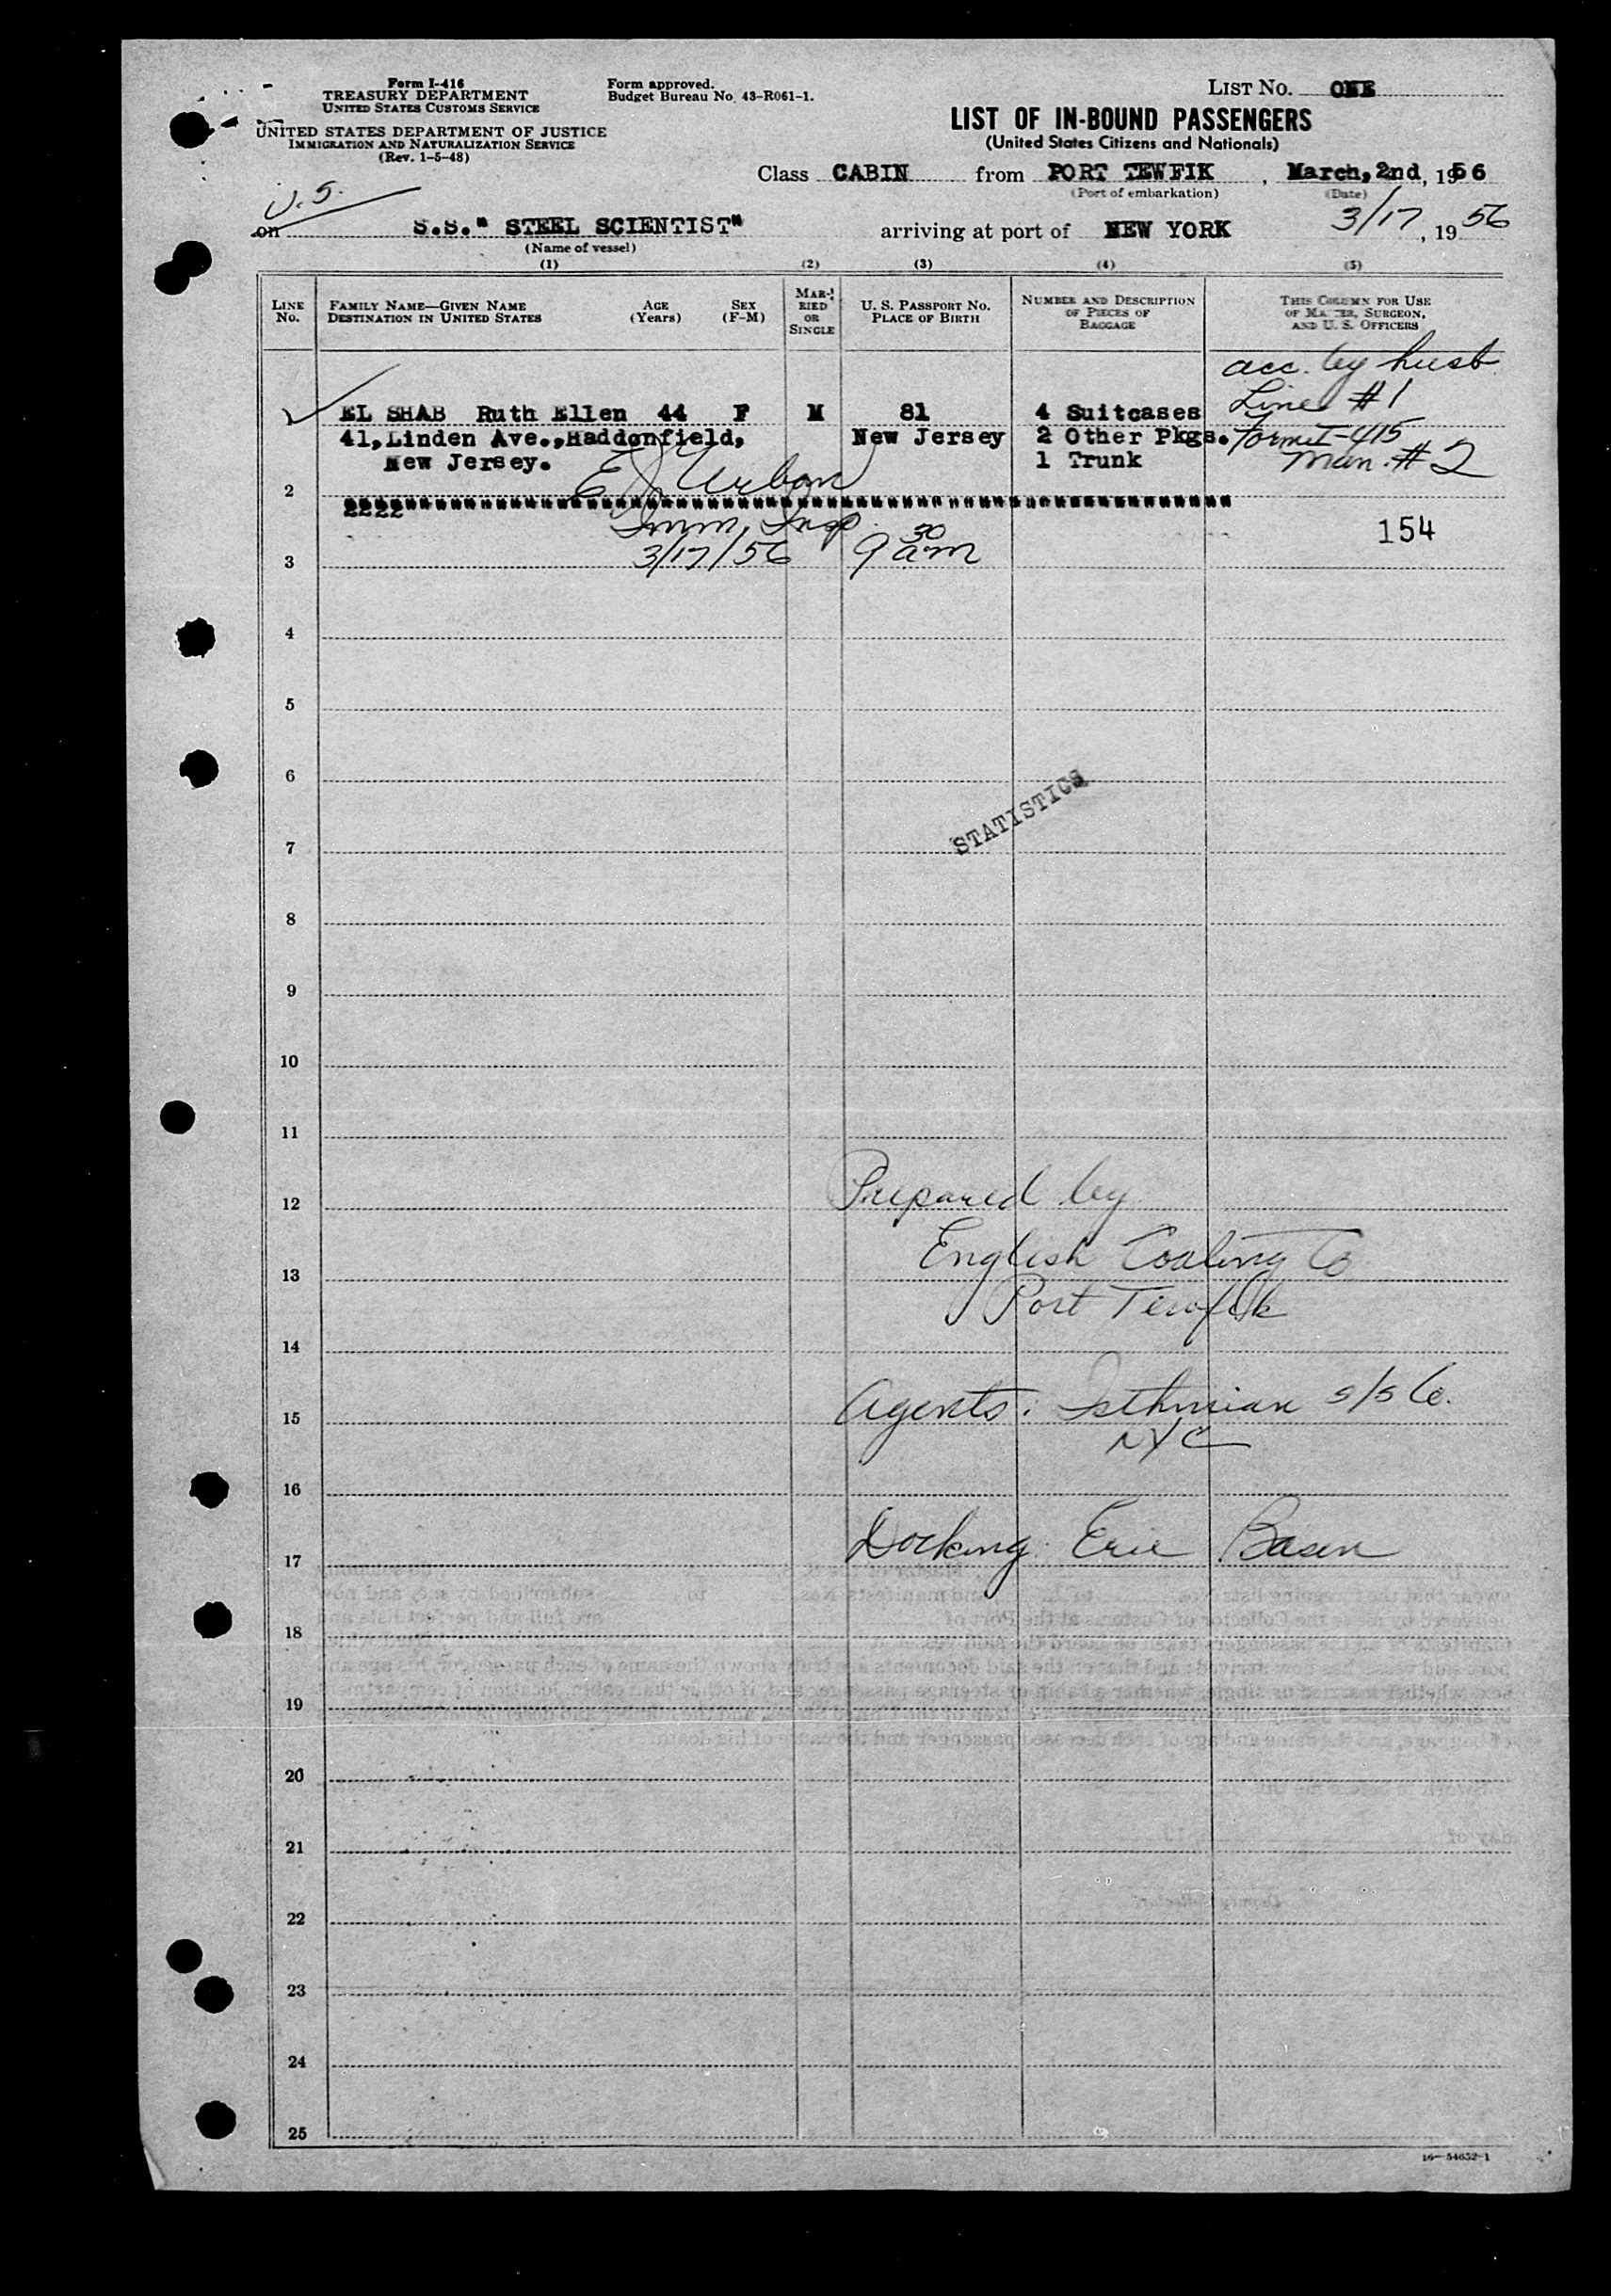 Form I-416
TREASURY DEPARTMENT
UNITED STATES CUSTOMS SERVICE
UNITED STATES DEPARTMENT OF JUSTICE
IMMIGRATION AND NATURALIZATION SERVICE
(Rev. 1-5-48)
Form approved.
Budget Bureau No. 43-R061-1.
LIST No. ONE
LIST OF IN-BOUND PASSENGERS
(United States Citizens and Nationals)
Class CABIN from PORT TEWFIK, March, 2nd, 1956
(Port of embarkation) (Date)
U.S.
on S.S." STEEL SCIENTIST" arriving at port of NEW YORK 3/17, 1956
(Name of vessel)
(1) (2) (3) (4) (5)
LINE No.
FAMILY NAME—GIVEN NAME
DESTINATION IN UNITED STATES
AGE (Years)
SEX (F-M)
MARRIED OR SINGLE
U. S. PASSPORT NO.
PLACE OF BIRTH
NUMBER AND DESCRIPTION OF PIECES OF BAGGAGE
THIS COLUMN FOR USE OF MASTER, SURGEON, AND U. S. OFFICERS
acc. by husb
EL SHAB Ruth Ellen 44 F M 81 4 Suitcases Line #1
41,Linden Ave.,Haddonfield, New Jersey 2 Other Pkgs. Form I-415
New Jersey. 1 Trunk Man. #2
E J Urban
2
Imm. Insp.
154
3 3/17/56 9 30 am
4
5
6
STATISTICS
7
8
9
10
11
12 Prepared by
English Coaling Co
13
Port Tewfik
14
15 Agents: Isthmian s/s Co.
NYC
16
17 Docking: Erie Basin
18
19
20
21
22
23
24
25
16—54652-1